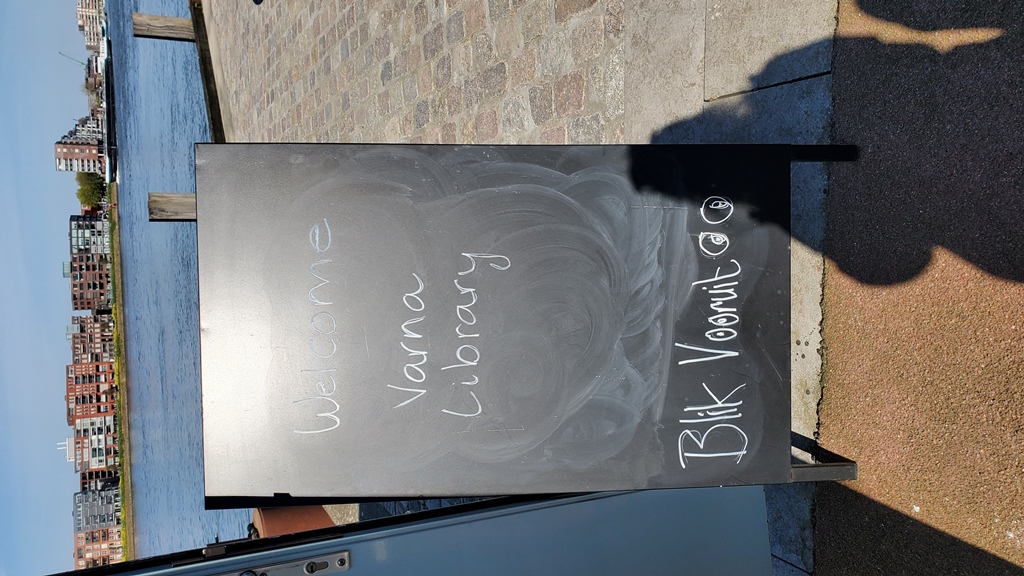 Welcome
Varna
Library
Blik Vooruit